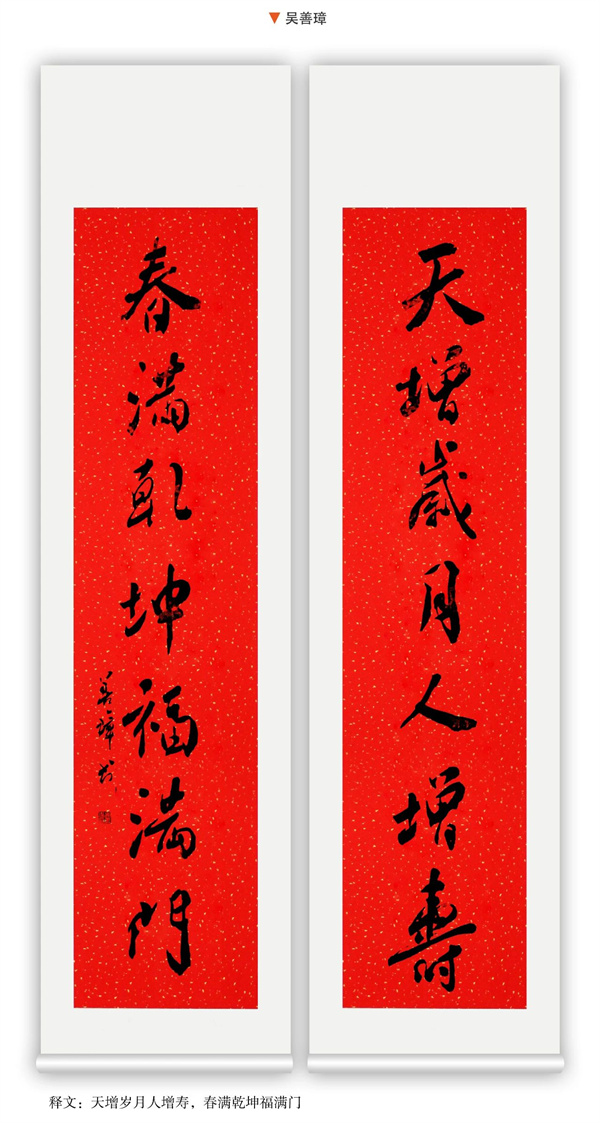 ▼ 吴善璋
天增歲月人增壽
春满乾坤福满门
善璋书
释文：天增岁月人增寿，春满乾坤福满门